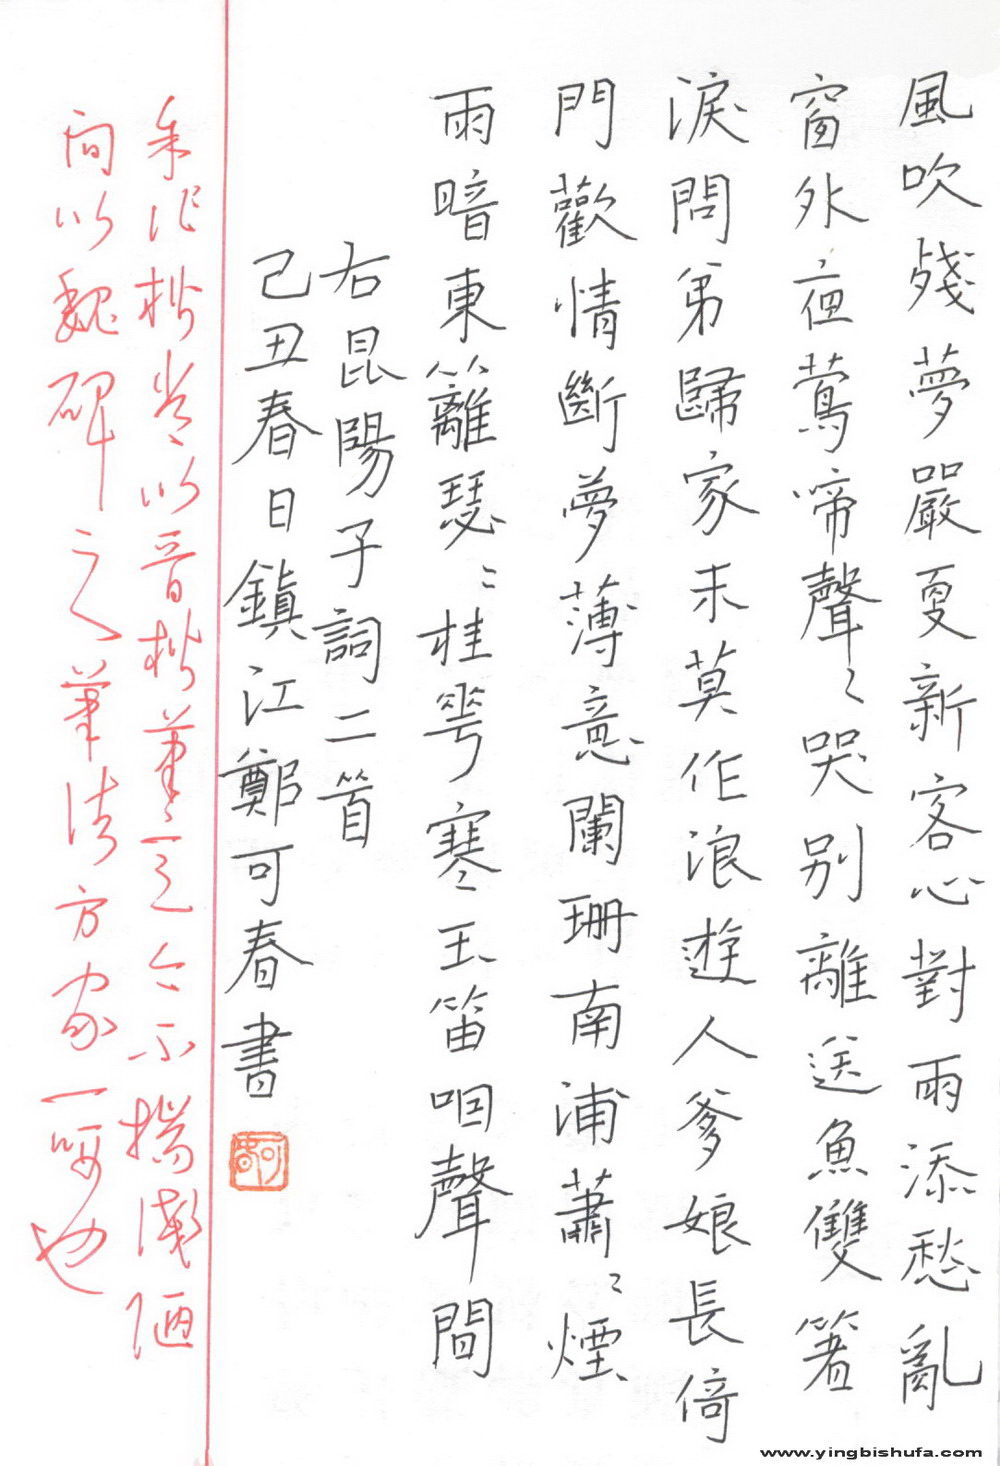 風吹殘夢嚴更新客心對雨添愁亂
窗外夜鶯啼聲〻哭別離送魚雙箸
淚問弟歸家未莫作浪遊人爹娘長倚
門歡情斷夢薄意闌珊南浦蕭〻煙
雨暗東籬瑟〻桂雩寒玉笛咽聲間
右昆陽子詞二首
己丑春日鎮江鄭可春書
余作楷常以晉楷筆意今不揣淺陋
向以魏碑之筆法方家一哂也
www.yingbishufa.com